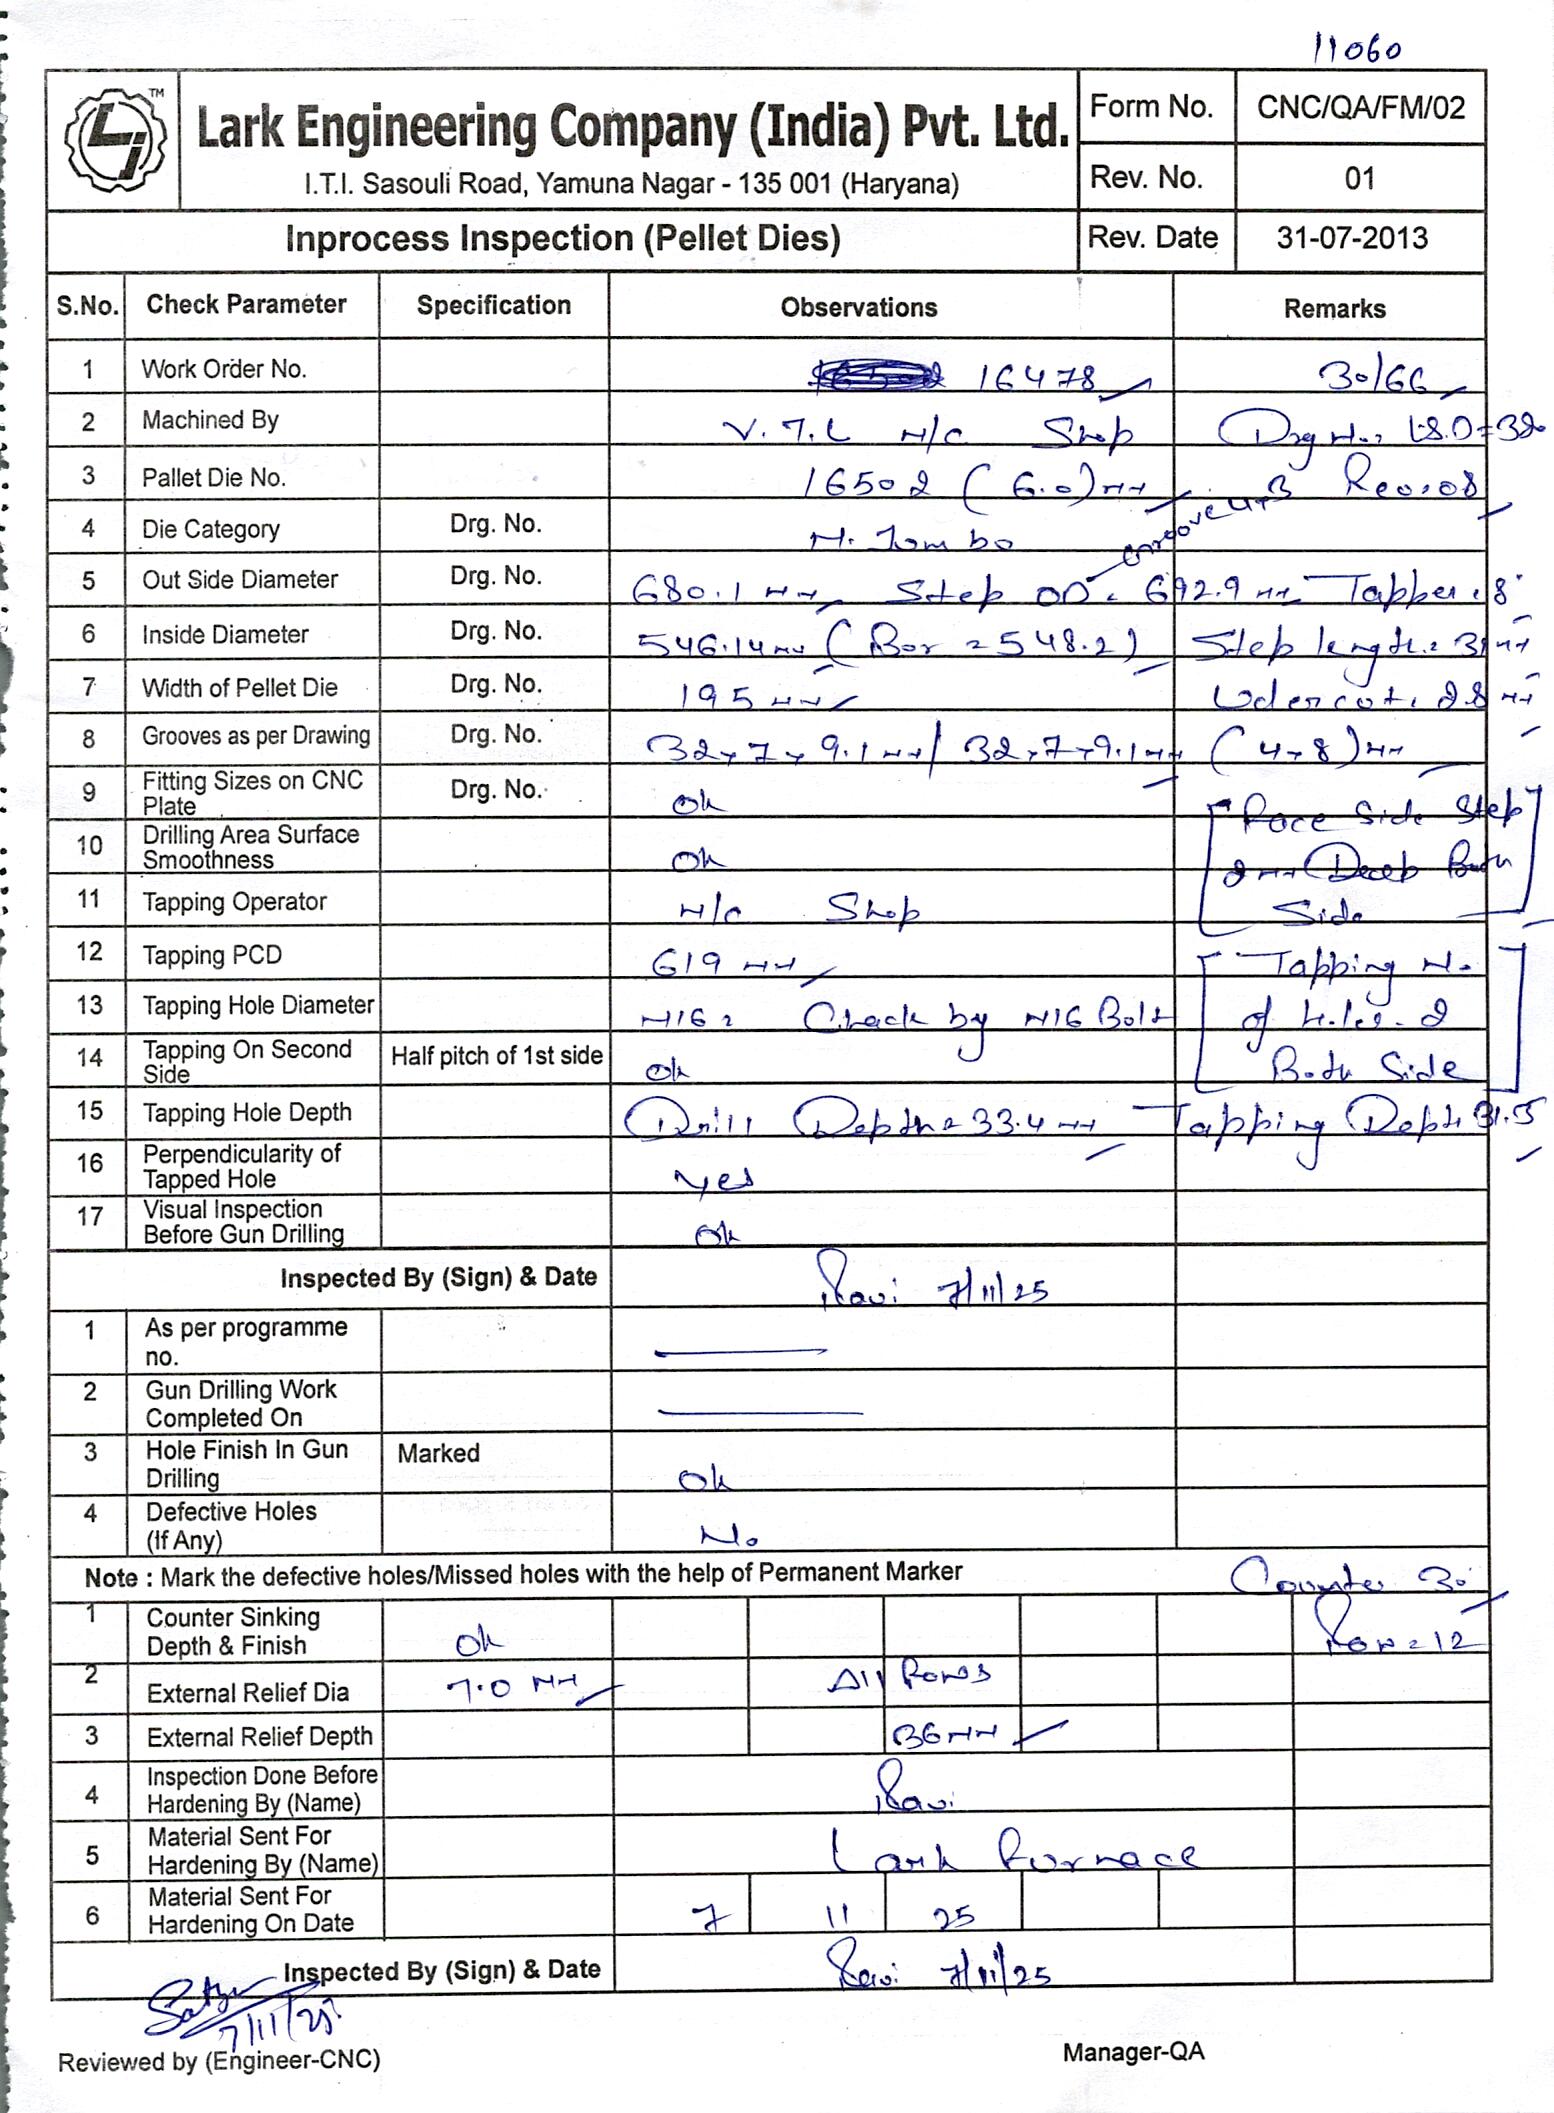 11060
TM
Lark Engineering Company (India) Pvt. Ltd.
I.T.I. Sasouli Road, Yamuna Nagar - 135 001 (Haryana)
Form No. CNC/QA/FM/02
Rev. No. 01
Inprocess Inspection (Pellet Dies) Rev. Date 31-07-2013
S.No. Check Parameter Specification Observations Remarks
1 Work Order No. 16478 30/66
2 Machined By V.T.L M/C Shop Drg No.
3 Pallet Die No. 16502 (6.0)MM
4 Die Category Drg. No. M. Jumbo
5 Out Side Diameter Drg. No. 680.1 MM Step OD. 692.9 MM Tapper. 8°
6 Inside Diameter Drg. No. 546.14 MM (Bor = 548.2) Step length = 31 MM
7 Width of Pellet Die Drg. No. 195 MM Udercot. 28 MM
8 Grooves as per Drawing Drg. No. 32x7x9.1 MM / 32x7x9.1 MM (4x8) MM
9 Fitting Sizes on CNC Plate Drg. No. Ok
10 Drilling Area Surface Smoothness Ok
[Face Side Step
2 MM Deep Both
Side]
11 Tapping Operator M/C Shop
12 Tapping PCD 619 MM
13 Tapping Hole Diameter M16 = Check by M16 Bolt
14 Tapping On Second Side Half pitch of 1st side Ok
[Tapping No.
of Holes. 2
Both Side]
15 Tapping Hole Depth Drill Depth = 33.4 MM Tapping Depth 31.5
16 Perpendicularity of Tapped Hole Yes
17 Visual Inspection Before Gun Drilling Ok
Inspected By (Sign) & Date Ravi 7/11/25
1 As per programme no.
2 Gun Drilling Work Completed On
3 Hole Finish In Gun Drilling Marked Ok
4 Defective Holes (If Any) No
Note : Mark the defective holes/Missed holes with the help of Permanent Marker Counter 30°
1 Counter Sinking Depth & Finish Ok Row = 12
2 External Relief Dia 7.0 MM All Rows
3 External Relief Depth 36 MM
4 Inspection Done Before Hardening By (Name) Ravi
5 Material Sent For Hardening By (Name) Lark Furnace
6 Material Sent For Hardening On Date 7 11 25
Inspected By (Sign) & Date Ravi 7/11/25
7/11/25
Reviewed by (Engineer-CNC) Manager-QA